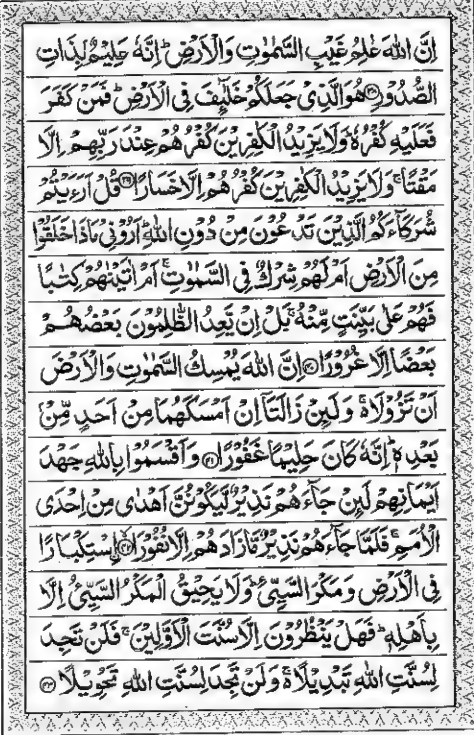 اِنَّ اللّٰهَ عٰلِمُ غَيْبِ السَّمٰوٰتِ وَالْاَرْضِ ؕ اِنَّهٗ عَلِيْمٌۢ بِذَاتِ
الصُّدُوْرِ ﴿۳۸﴾ هُوَ الَّذِيْ جَعَلَكُمْ خَلٰٓئِفَ فِي الْاَرْضِ ؕ فَمَنْ كَفَرَ
فَعَلَيْهِ كُفْرُهٗ ؕ وَلَا يَزِيْدُ الْكٰفِرِيْنَ كُفْرُهُمْ عِنْدَ رَبِّهِمْ اِلَّا
مَقْتًا ۚ وَلَا يَزِيْدُ الْكٰفِرِيْنَ كُفْرُهُمْ اِلَّا خَسَارًا ﴿۳۹﴾ قُلْ اَرَءَيْتُمْ
شُرَكَآءَكُمُ الَّذِيْنَ تَدْعُوْنَ مِنْ دُوْنِ اللّٰهِ ؕ اَرُوْنِيْ مَاذَا خَلَقُوْا
مِنَ الْاَرْضِ اَمْ لَهُمْ شِرْكٌ فِي السَّمٰوٰتِ ۚ اَمْ اٰتَيْنٰهُمْ كِتٰبًا
فَهُمْ عَلٰى بَيِّنَتٍ مِّنْهُ ۚ بَلْ اِنْ يَّعِدُ الظّٰلِمُوْنَ بَعْضُهُمْ
بَعْضًا اِلَّا غُرُوْرًا ﴿۴۰﴾ اِنَّ اللّٰهَ يُمْسِكُ السَّمٰوٰتِ وَالْاَرْضَ
اَنْ تَزُوْلَا ۚ۬ وَلَئِنْ زَالَتَاۤ اِنْ اَمْسَكَهُمَا مِنْ اَحَدٍ مِّنْۢ
بَعْدِهٖ ؕ اِنَّهٗ كَانَ حَلِيْمًا غَفُوْرًا ﴿۴۱﴾ وَاَقْسَمُوْا بِاللّٰهِ جَهْدَ
اَيْمَانِهِمْ لَئِنْ جَآءَهُمْ نَذِيْرٌ لَّيَكُوْنُنَّ اَهْدٰى مِنْ اِحْدَى
الْاُمَمِ ۚ فَلَمَّا جَآءَهُمْ نَذِيْرٌ مَّا زَادَهُمْ اِلَّا نُفُوْرًا ﴿۴۲﴾ اِسْتِكْبَارًا
فِي الْاَرْضِ وَمَكْرَ السَّيِّئِ ؕ وَلَا يَحِيْقُ الْمَكْرُ السَّيِّئُ اِلَّا
بِاَهْلِهٖ ؕ فَهَلْ يَنْظُرُوْنَ اِلَّا سُنَّتَ الْاَوَّلِيْنَ ۚ فَلَنْ تَجِدَ
لِسُنَّتِ اللّٰهِ تَبْدِيْلًا ۚ۬ وَلَنْ تَجِدَ لِسُنَّتِ اللّٰهِ تَحْوِيْلًا ﴿۴۳﴾